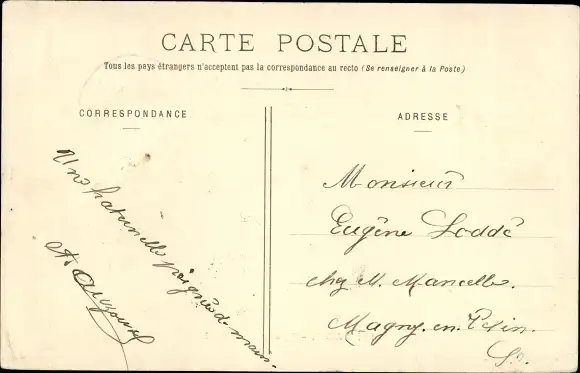 CARTE POSTALE
Tous les pays étrangers n'acceptent pas la correspondance au recto (Se renseigner à la Poste)
CORRESPONDANCE
Une fraternelle poignée de main.
ADRESSE
Monsieur
Eugène Loddé
chez M. Mancelle.
Magny-en-Vexin.